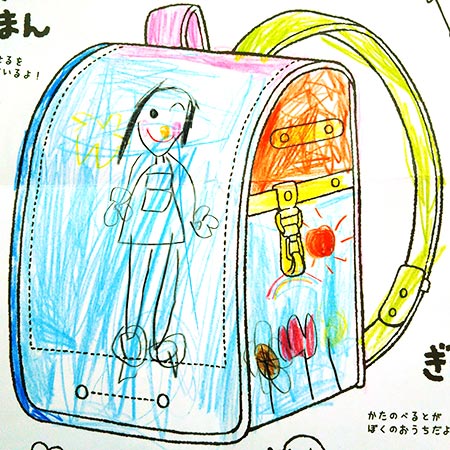 まん
せるを
いるよ！
ぎ
かたのべるとが
ぼくのおうちだよ